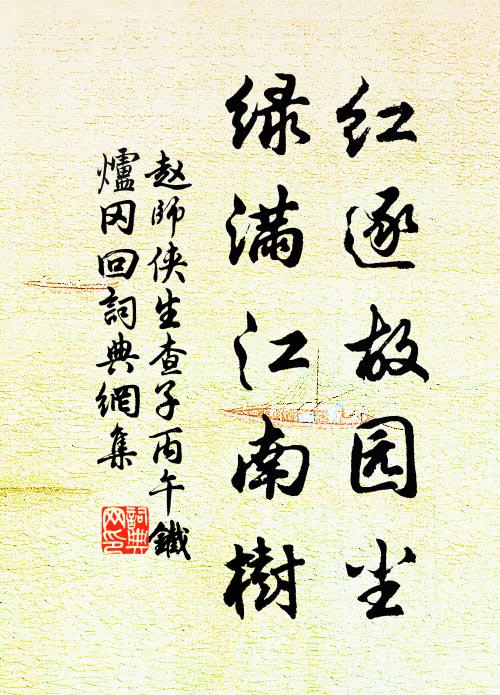 红逐故园尘
绿满江南樹
赵師侠生查子丙午鐵
爐冈回詞典網集
詞典
网印